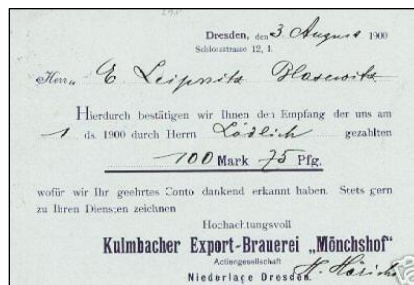 Dresden, den 3. August 1900
Schlossstrasse 12, I.
Herrn E. Leipnitz Blasewitz
Hierdurch bestätigen wir Ihnen den Empfang der uns am
1 ds. 1900 durch Herrn Lödlich gezahlten
100 Mark 75 Pfg.
wofür wir Ihr geehrtes Conto dankend erkannt haben. Stets gern
zu Ihren Diensten zeichnen
Hochachtungsvoll
Kulmbacher Export-Brauerei „Mönchshof"
Actiengesellschaft
Niederlage Dresden.